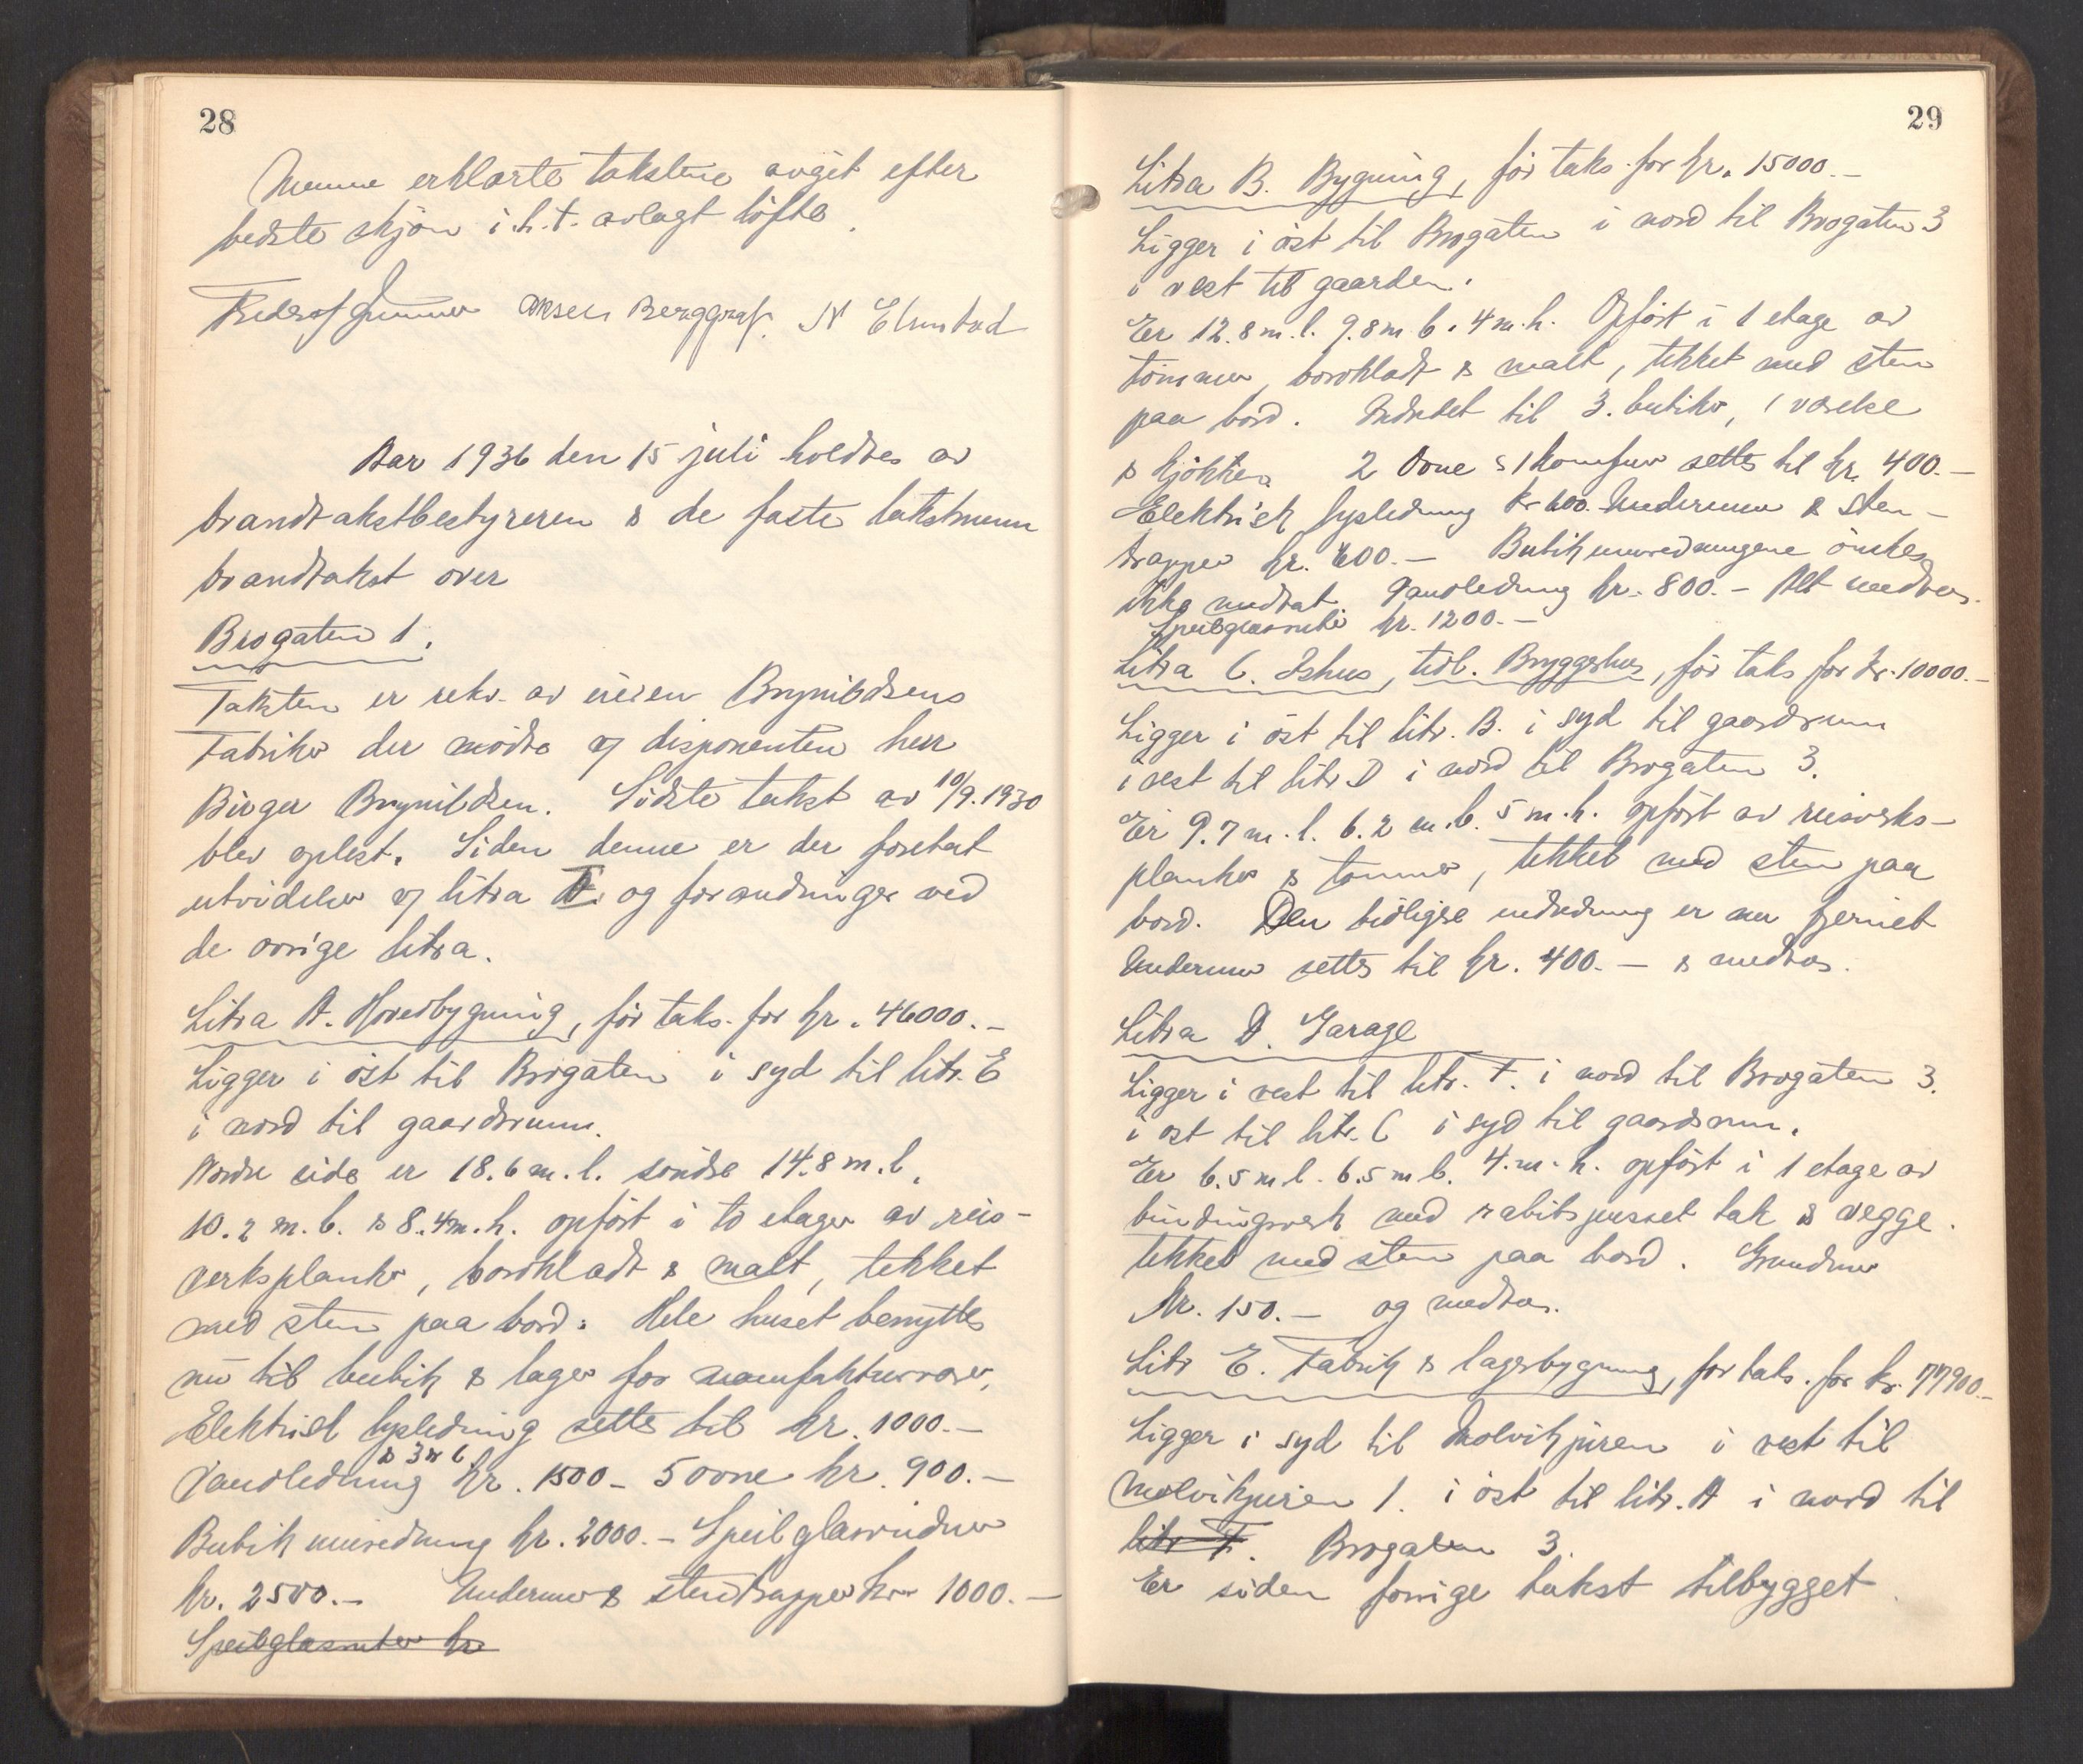 28
Mennene erklærte takstene avgit efter
bedste skjøn i.h.t. avlagt løfte.
Aksel Berggraf. N Elmstad
Aar 1936 den 15 juli holdtes av
brandtakstbestyreren & de faste takstmenn
brandtakst over
Brogaten 1.
Taksten er rekv. av eieren Brynildsens
Fabriker der mødte v/ disponenten herr
Birger Brynildsen. Sidste takst av 10/9.1930
blev oplest. Siden denne er der foretat
utvidelser av litra F. og forandringer ved
de øvrige litra.
Litra A. Hovedbygning, før taks. for kr. 46000.-
Ligger i øst til Brogaten i syd til litr. E
i nord til gaardsrum.
Nordre side er 18.6 m. l. søndre 14.8 m. l.
10.2 m. b. & 8.4 m. h. opført i to etager av reis-
verksplanker, bordklædt & malt, tekket
med sten paa bord. Hele huset benyttes
nu til butik & lager for manufakturvarer.
Elektrisk lysledning settes til kr. 1000.-
& 3 w c
Vandledning kr. 1500- 5 ovne kr. 900.-
Butikinnredning kr. 2000.- Speilglasvinduer
kr. 2500.- Undermur & stentrapper kr. 1000.-
Speilglasruter kr
29
Litra B. Bygning, før taks. for kr. 15000.-
Ligger i øst til Brogaten i nord til Brogaten 3
i vest til gaarden.
Er 12.8 m. l. 9.8 m b. 4 m. h. Opført i 1 etage av
tømmer, bordklædt & malt, tekket med sten
paa bord. Indredet til 3. butiker, 1 værelse
& kjøkken. 2 Ovne & 1 komfur settes til kr. 400.-
Elektrisk lysledning kr 600. Undermur & sten-
trapper kr. 600.- Butikinnredningene ønskes
ikke medtat. Vandledning kr. 800.- Alt medtas.
Speilglasruter kr. 1200.-
Litra C. Ishus, tidl. Bryggerhus, før taks for kr. 10000.-
Ligger i øst til litr. B. i syd til gaardsrum
i vest til litr. D i nord til Brogaten 3.
Er 9.7 m. l. 6.2 m. b. 5 m. h. opført av reisverks-
planker & tømmer, tekket med sten paa
bord. Den tidligere indredning er nu fjernet
Undermur settes til kr. 400.- & medtas.
Litra D. Garage
Ligger i vest til litr. F. i nord til Brogaten 3.
i øst til litr. C i syd til gaardsrum.
Er 6.5 m l. 6.5 m b. 4. m. h. opført i 1 etage av
bindingsverk med rabitspusset tak & vegge.
tekket med sten paa bord. Grundmur
kr. 150.- og medtas.
Litr E. Fabrik & lagerbygning, før taks. for kr. 77900.-
Ligger i syd til Molvikjuren i vest til
Molvikjuren 1. i øst til litr. A i nord til
litr F. Brogaten 3.
Er siden forrige takst tilbygget